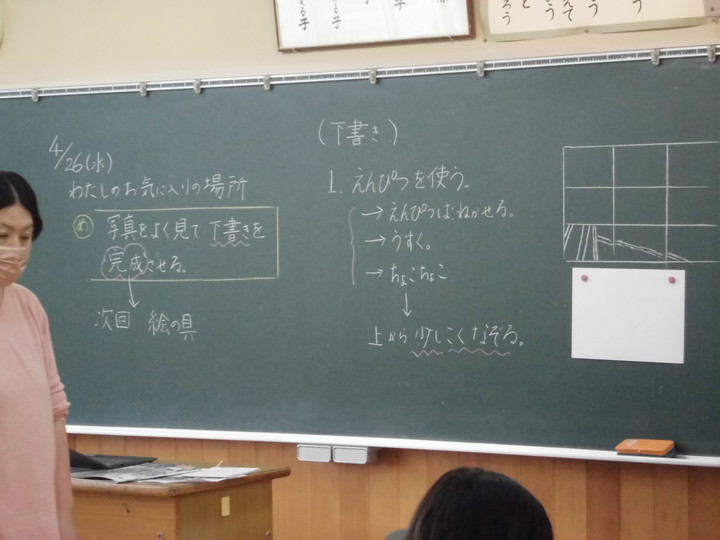 4/26(水)
わたしのお気に入りの場所
め 写真をよく見て下書きを
完成させる。
↓
次回 絵の具
(下書き)
1. えんぴつを使う。
→えんぴつはねかせる。
→うすく。
→ちょこちょこ
↓
上から少しこくなぞる。